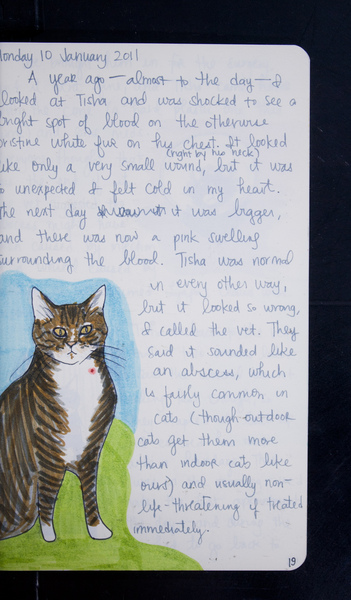 Monday 10 January 2011
A year ago — almost to the day — I
looked at Tisha and was shocked to see a
bright spot of blood on the otherwise
pristine white fur on his chest. It looked
(right by his neck)
like only a very small wound, but it was
so unexpected I felt cold in my heart.
The next day it was bigger,
and there was now a pink swelling
surrounding the blood. Tisha was normal
in every other way,
but it looked so wrong,
I called the vet. They
said it sounded like
an abscess, which
is fairly common in
cats (though outdoor
cats get them more
than indoor cats like
ours) and usually non-
life-threatening if treated
immediately.
19